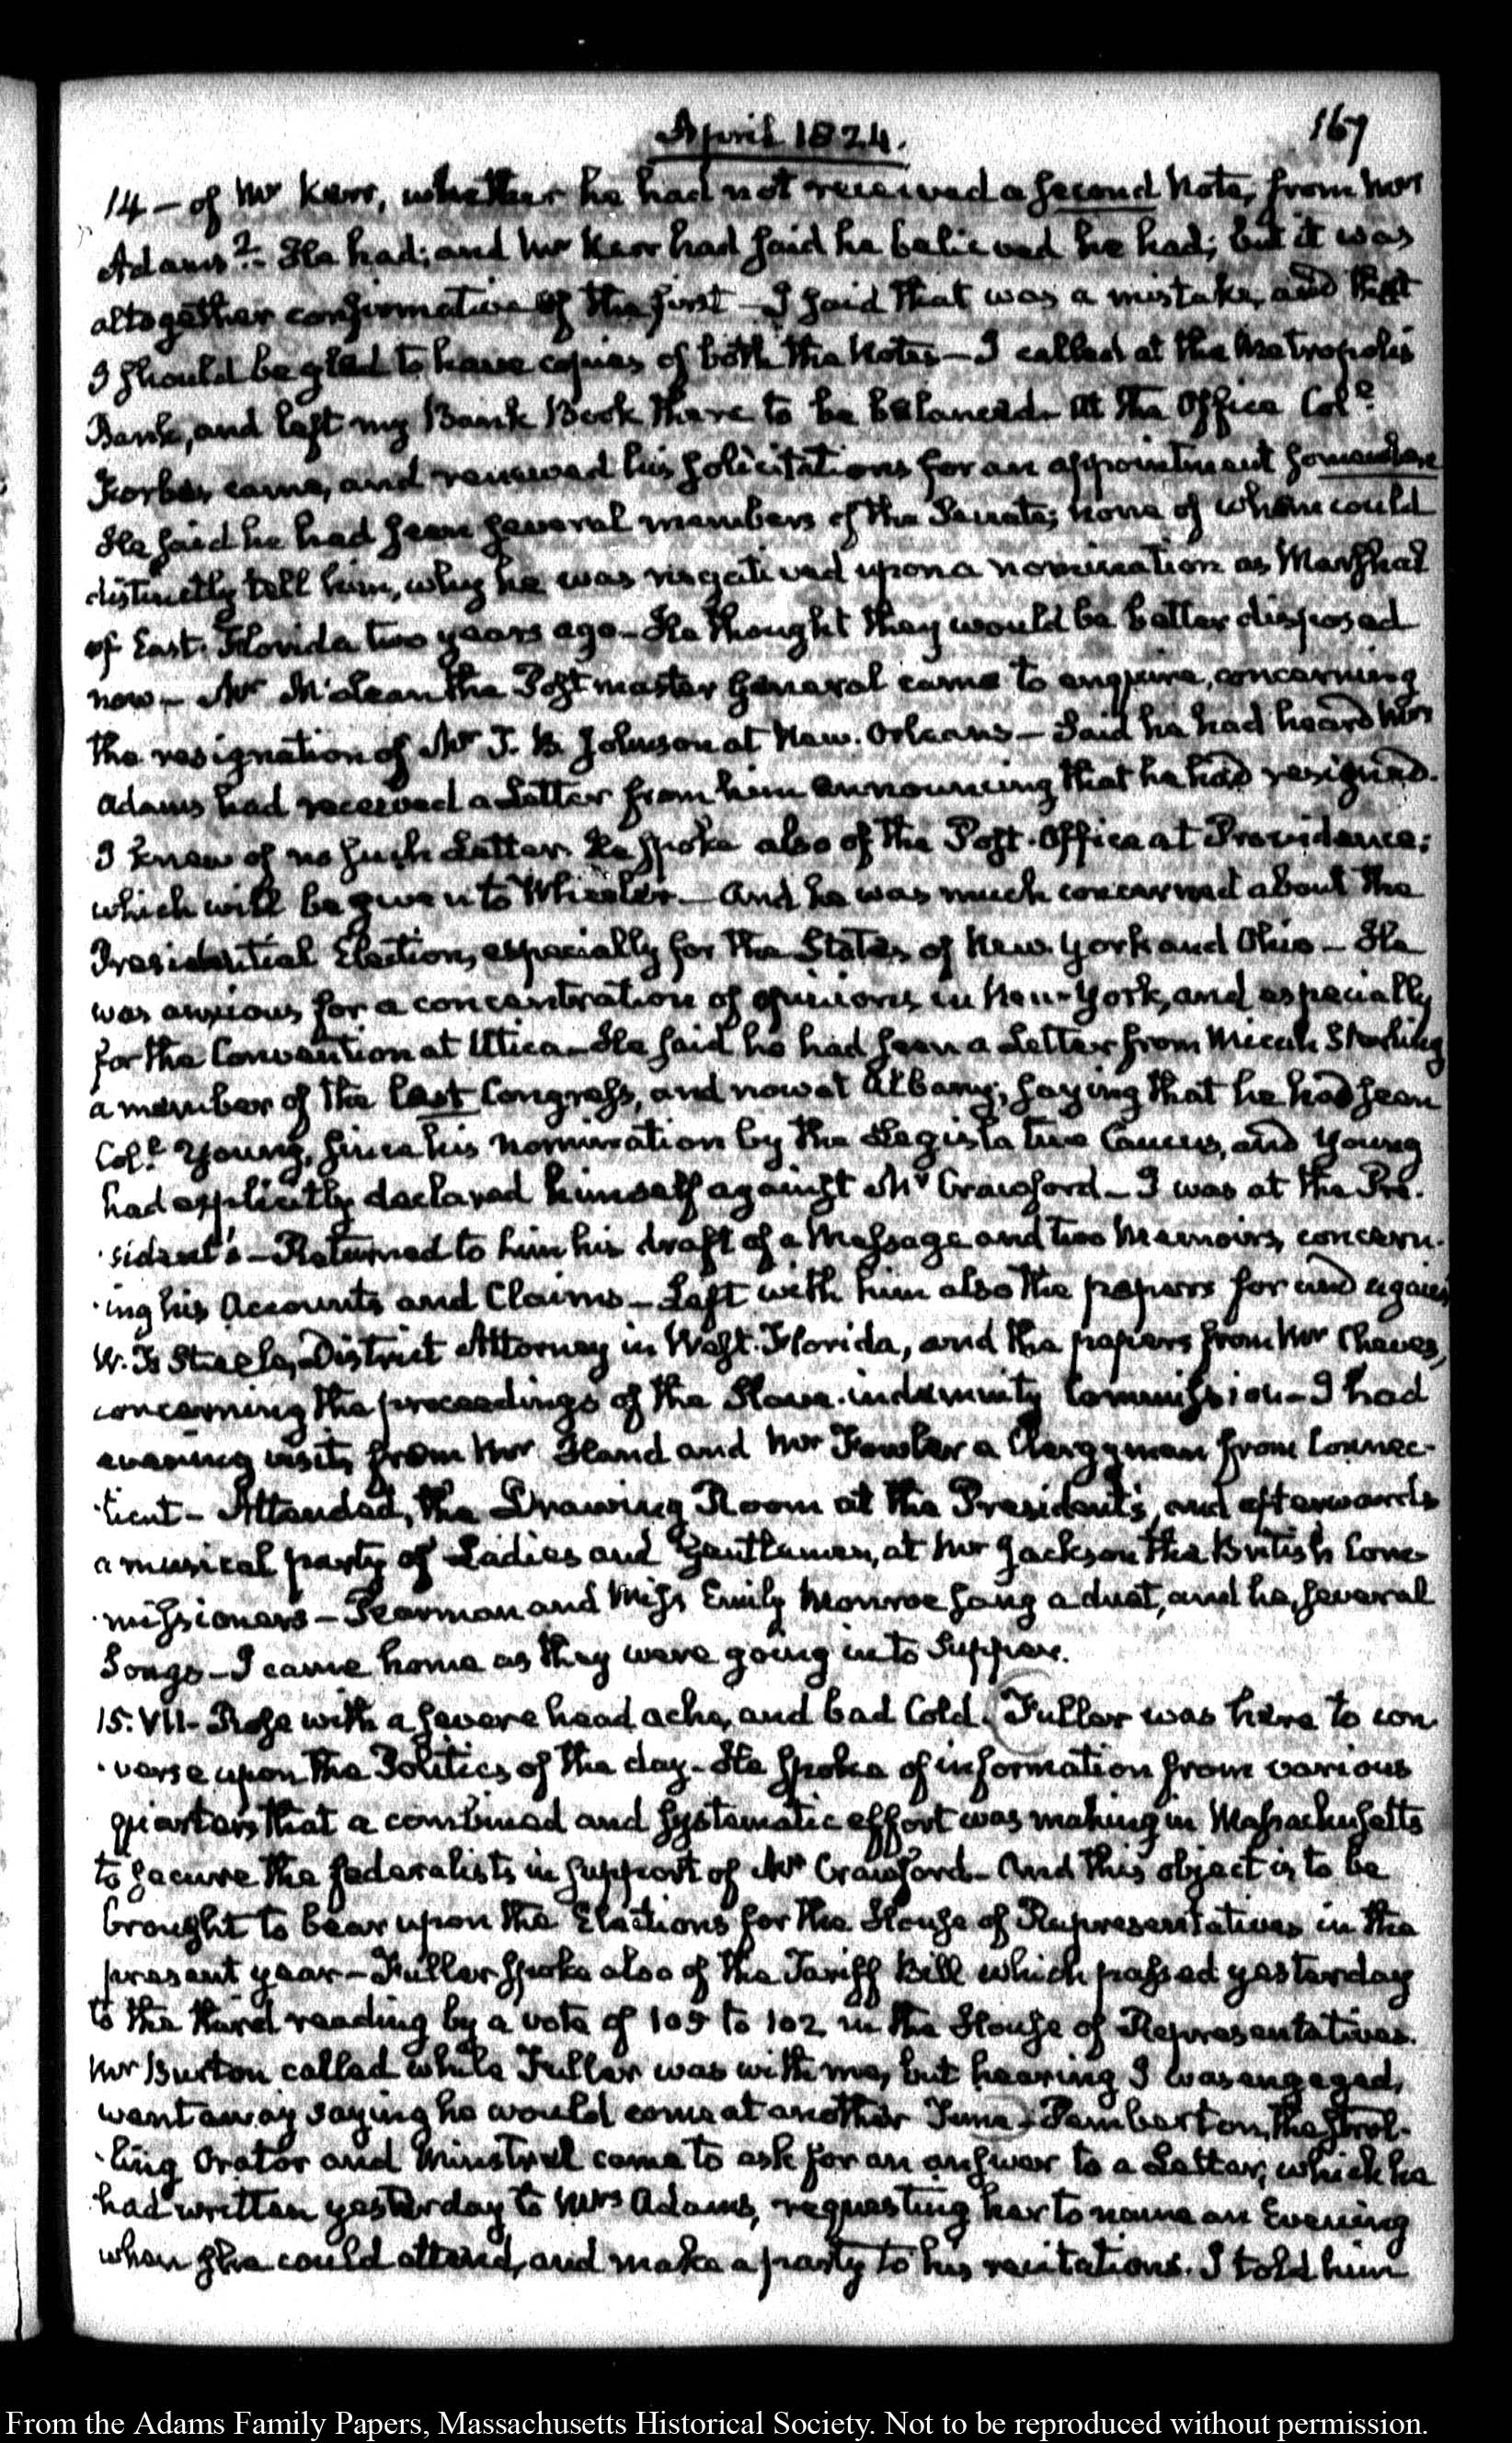 April 1824.
167
14 — of Mr Kerr, whether he had not received a second Note, from Mrs
Adams?— He had; and Mr Kerr had said he believed he had; but it was
altogether confirmative of the first — I said that was a mistake, and that
I should be glad to have copies of both the Notes — I called at the Metropolis
Bank, and left my Bank Book there to be balanced — At the Office Coll.
Forbes came, and renewed his solicitations for an appointment somewhere
He said he had seen several members of the Senate; none of whom could
distinctly tell him, why he was negatived upon a nomination as Marshal
of East-Florida two years ago — He thought they would be better disposed
now — Mr McLean the Postmaster General came to enquire, concerning
the resignation of Mr T. B. Johnson at New-Orleans — Said he had heard Mrs
Adams had received a Letter from him announcing that he had resigned.
I knew of no such Letter. He spoke also of the Post-Office at Providence;
which will be given to Wheeler — And he was much concerned about the
Presidential Election, especially for the States of New-York and Ohio — He
was anxious for a concentration of opinions in New-York, and especially
for the Convention at Utica — He said he had seen a Letter from Micah Sterling
a member of the last Congress, and now at Albany; saying that he had seen
Coll. Young, since his nomination by the Legislative Caucus, and Young
had explicitly declared himself against Mr Crawford — I was at the Pre-
-sident's — Returned to him his draft of a Message and two Memoirs, concern-
-ing his Accounts and Claims — Left with him also the papers for and against
W. F. Steele, District Attorney in West-Florida, and the papers from Mr Cheves,
concerning the proceedings of the Slave-indemnity Commission — I had
evening visits from Mr Hand and Mr Fowler a Clergyman from Connec-
-ticut — Attended, the Drawing Room at the President's, and afterwards
a musical party of Ladies and Gentlemen, at Mr Jackson the British Com-
-missioners — Pearman and Miss Emily Monroe sang a duet, and he, several
Songs — I came home as they were going in to Supper.
15. VII- Rose with a severe head ache, and bad Cold. Fuller was here to con-
-verse upon the Politics of the day — He spoke of information from various
quarters that a combined and systematic effort was making in Massachusetts
to secure the federalists in support of Mr Crawford — And this object is to be
brought to bear upon the Elections for the House of Representatives in the
present year — Fuller spoke also of the Tariff Bill which passed yesterday
to the third reading by a vote of 105 to 102 in the House of Representatives.
Mr Burton called while Fuller was with me, but hearing I was engaged,
went away saying he would come at another Time — Pemberton, the strol-
-ling Orator and Minstrel came to ask for an answer to a Letter, which he
had written yesterday to Mrs Adams, requesting her to name an Evening
when she could attend, and make a party to his recitations. I told him
From the Adams Family Papers, Massachusetts Historical Society. Not to be reproduced without permission.